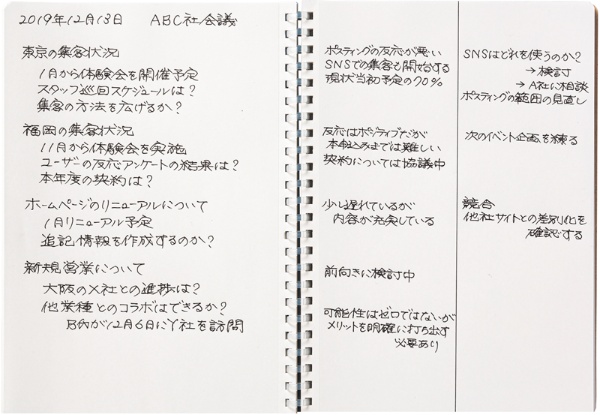 2019年12月13日 ABC社会議
東京の集客状況
1月から体験会を開催予定
スタッフ巡回スケジュールは?
集客の方法を広げるか?
福岡の集客状況
11月から体験会を実施
ユーザーの反応アンケートの結果は?
本年度の契約は?
ホームページのリニューアルについて
1月リニューアル予定
追記情報を作成するのか?
新規営業について
大阪のX社との進捗は?
他業種とのコラボはできるか?
B氏が12月6日にY社を訪問
ポスティングの反応が悪い
SNSでの集客も開始する
現状当初予定の70%
反応はポジティブだが
本申込みまでは難しい
契約については協議中
少し遅れているが
内容が充実している
前向きに検討中
可能性はゼロではないが
メリットを明確に打ち出す
必要あり
SNSはどれを使うのか?
→検討
→A社に相談
ポスティングの範囲の見直し
次のイベント企画を練る
競合
他社サイトとの差別化を
確認する